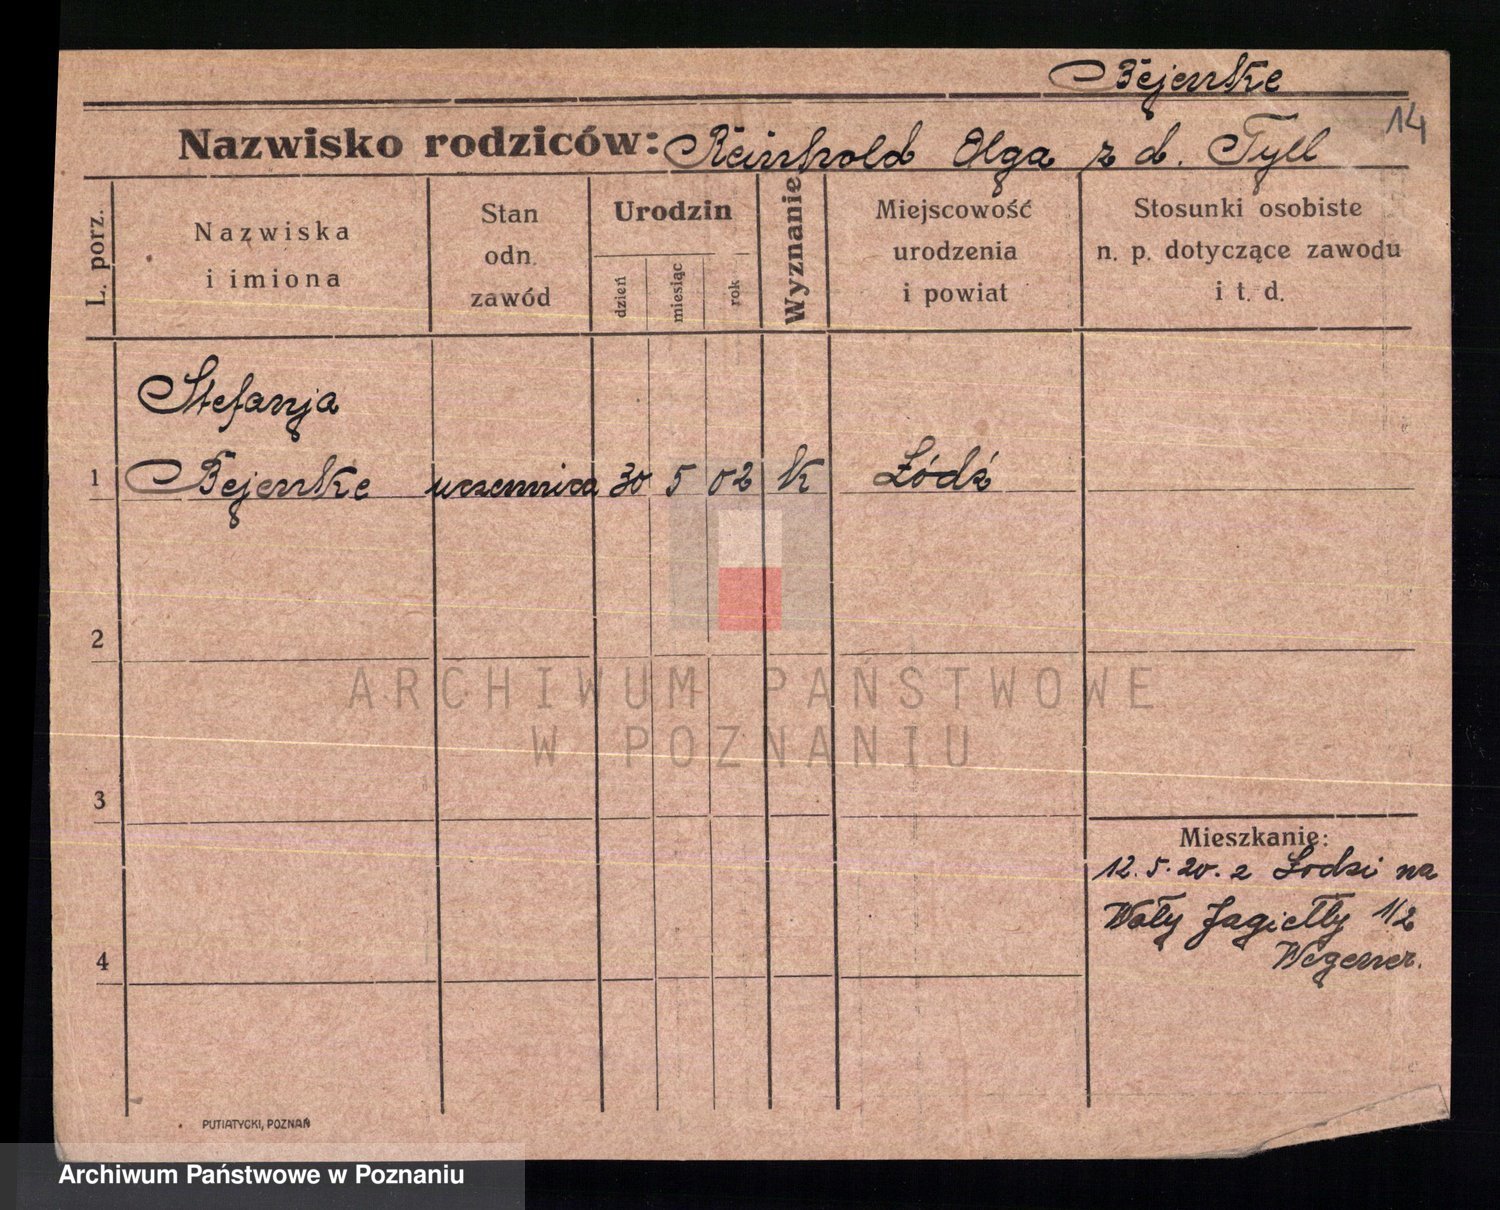 Bejenke
14
Nazwisko rodziców: Reinhold Olga z d. Tyll
L. porz.
Nazwiska
i imiona
Stan
odn.
zawód
Urodzin
dzień
miesiąc
rok
Wyznanie
Miejscowość
urodzenia
i powiat
Stosunki osobiste
n. p. dotyczące zawodu
i t. d.
Stefanja
1 Bejenke uczennica 30 5 02 k Łódź
2
3
4
Mieszkanie:
12. 5. 20. z Łodzi na
Wały Jagiełły 1/2
Wegener.
PUTIATYCKI, POZNAŃ
ARCHIWUM PAŃSTWOWE
W POZNANIU
Archiwum Państwowe w Poznaniu